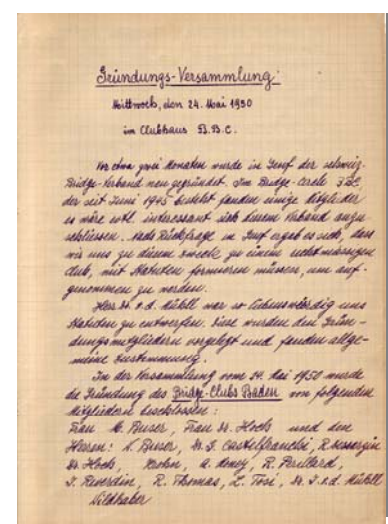 Gründungs-Versammlung:
Mittwoch, den 24. Mai 1950
im Clubhaus B.B.C.
Vor etwa zwei Monaten wurde in Genf der schweiz.
Bridge-Verband neu gegründet. Im Bridge-Circle BBC,
der seit Juni 1945 besteht fanden einige Mitglieder
es wäre evtl. interessant sich diesem Verband anzu-
schliessen. Nach Rückfrage in Genf ergab es sich, dass
wir uns zu diesem Zwecke zu einem rechtmässigen
Club, mit Statuten formieren müssen, um auf-
genommen zu werden.
Herr Dr. v.d. Mühll war so liebenswürdig uns
Statuten zu entwerfen. Diese wurden den Grün-
dungsmitgliedern vorgelegt und fanden allge-
meine Zustimmung.
In der Versammlung vom 24. Mai 1950 wurde
die Gründung des Bridge-Clubs Baden von folgenden
Mitgliedern beschlossen:
Frau M. Buser, Frau Dr. Hoch und den
Herren: K. Buser, Dr. J. Castelfranchi,
Dr. Hoch, Krohn, A. Meney, R. Perillard,
J. Reverdin, R. Thomas, L. Tosi, Dr. J. v.d. Mühll
Wildhaber